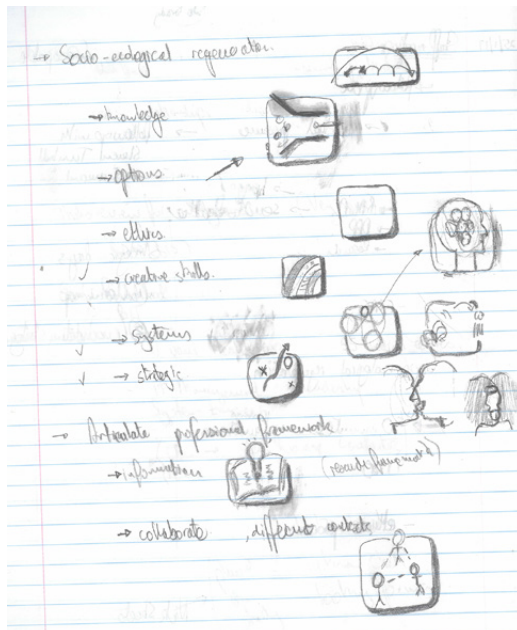 → Socio-ecological regeneration.
→ knowledge
→ options
→ ethics
✓ → creative skills.
✓ → Systems
✓ → strategic
→ Articulate professional framework
→ information
→ collaborate , different contexts